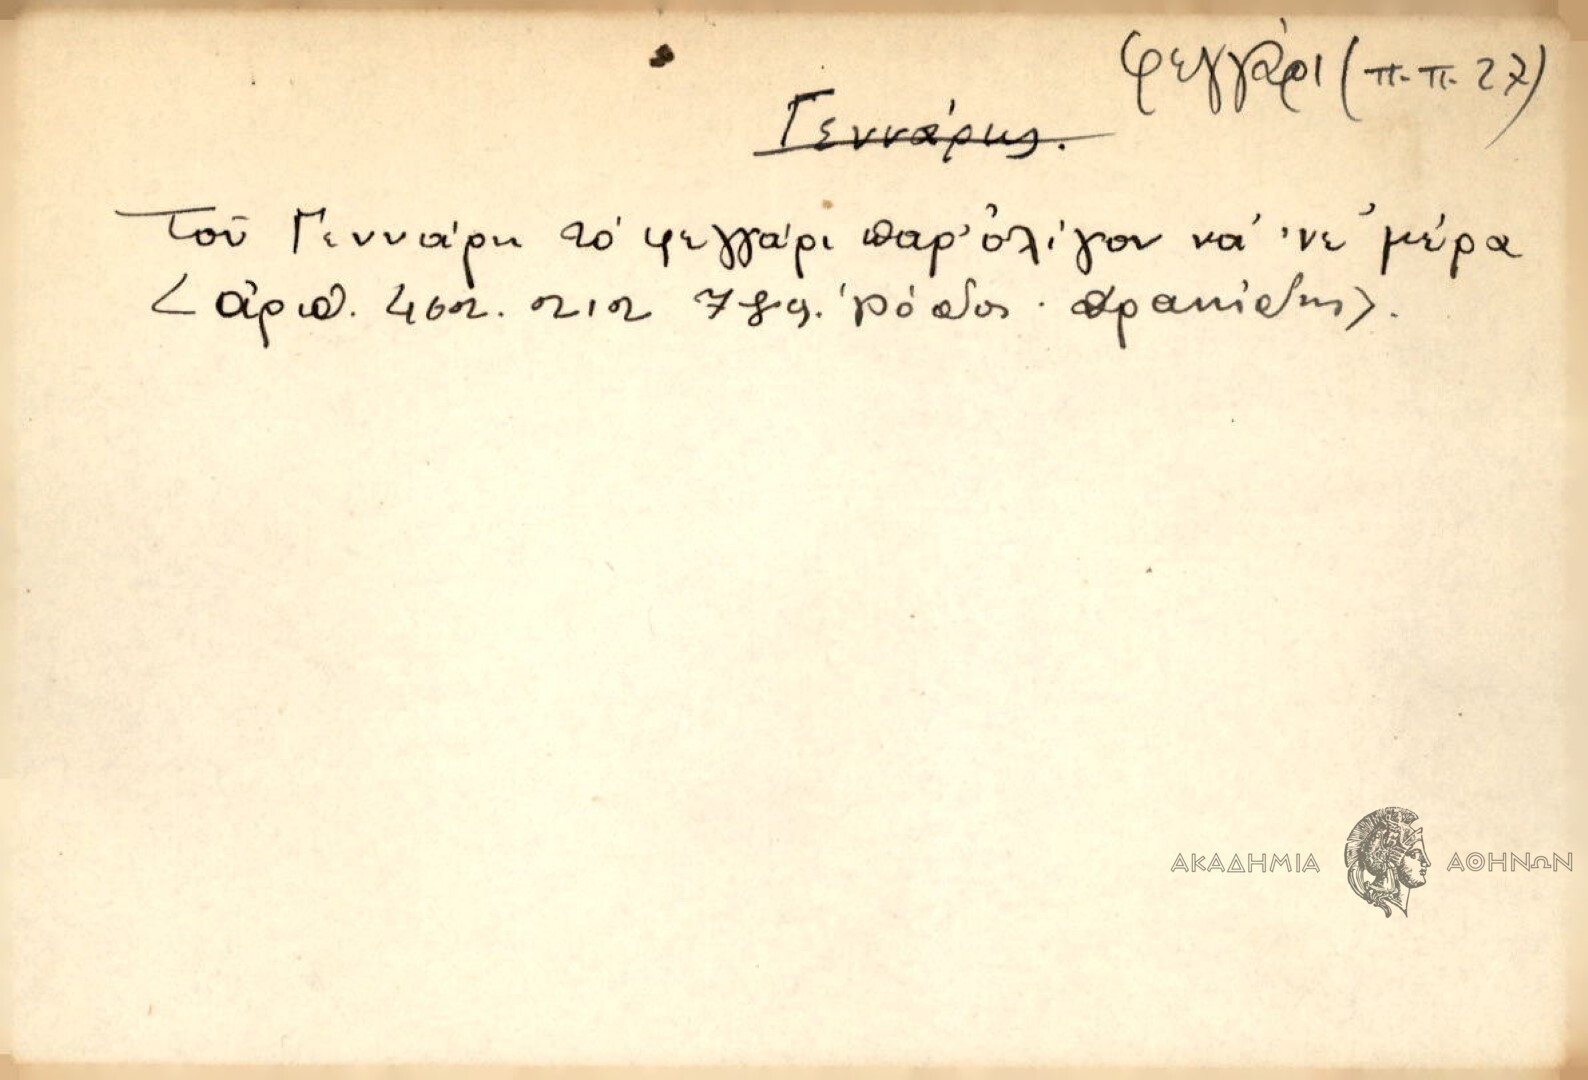 φεγγάρι (π.π. 27)
Γεννάρης.
Τοῦ Γεννάρη τό φεγγάρι παρ' ὀλίγον νά 'νε 'μέρα
<ἀριθ. 402. 212 Ῥόδος. Δρακίδης>.
ΑΚΑΔΗΜΙΑ ΑΘΗΝΩΝ